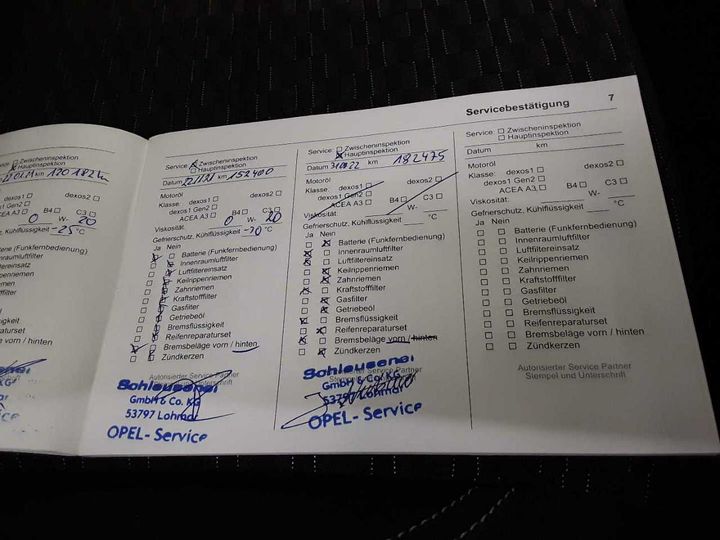 Servicebestätigung 7
Zwischeninspektion
Hauptinspektion
km 120 182
dexos1 dexos2
dexos1 Gen2
ACEA A3 B4 C3
0 W- 20
Kühlflüssigkeit -25 °C
Batterie (Funkfernbedienung)
Innenraumluftfilter
Service: Zwischeninspektion
Hauptinspektion
Datum km 152400
Motoröl
Klasse: dexos1 dexos2
dexos1 Gen2
ACEA A3 B4 C3
Viskosität: 0 W- 20
Gefrierschutz, Kühlflüssigkeit -30 °C
Ja Nein
Batterie (Funkfernbedienung)
Innenraumluftfilter
Luftfiltereinsatz
Keilrippenriemen
Zahnriemen
Kraftstofffilter
Gasfilter
Getriebeöl
Bremsflüssigkeit
Reifenreparaturset
Bremsbeläge vorn / hinten
Zündkerzen
Autorisierter Service Partner
Stempel und Unterschrift
GmbH & Co. KG
53797 Lohmar
OPEL- Service
Service: Zwischeninspektion
Hauptinspektion
Datum km 182475
Motoröl
Klasse: dexos1 dexos2
dexos1 Gen2
ACEA A3 B4 C3
Viskosität: W-
Gefrierschutz, Kühlflüssigkeit °C
Ja Nein
Batterie (Funkfernbedienung)
Innenraumluftfilter
Luftfiltereinsatz
Keilrippenriemen
Zahnriemen
Kraftstofffilter
Gasfilter
Getriebeöl
Bremsflüssigkeit
Reifenreparaturset
Bremsbeläge vorn / hinten
Zündkerzen
Autorisierter Service Partner
Stempel und Unterschrift
GmbH & Co. KG
53797 Lohmar
OPEL- Service
Service: Zwischeninspektion
Hauptinspektion
Datum km
Motoröl
Klasse: dexos1 dexos2
dexos1 Gen2
ACEA A3 B4 C3
Viskosität: W-
Gefrierschutz, Kühlflüssigkeit °C
Ja Nein
Batterie (Funkfernbedienung)
Innenraumluftfilter
Luftfiltereinsatz
Keilrippenriemen
Zahnriemen
Kraftstofffilter
Gasfilter
Getriebeöl
Bremsflüssigkeit
Reifenreparaturset
Bremsbeläge vorn / hinten
Zündkerzen
Autorisierter Service Partner
Stempel und Unterschrift